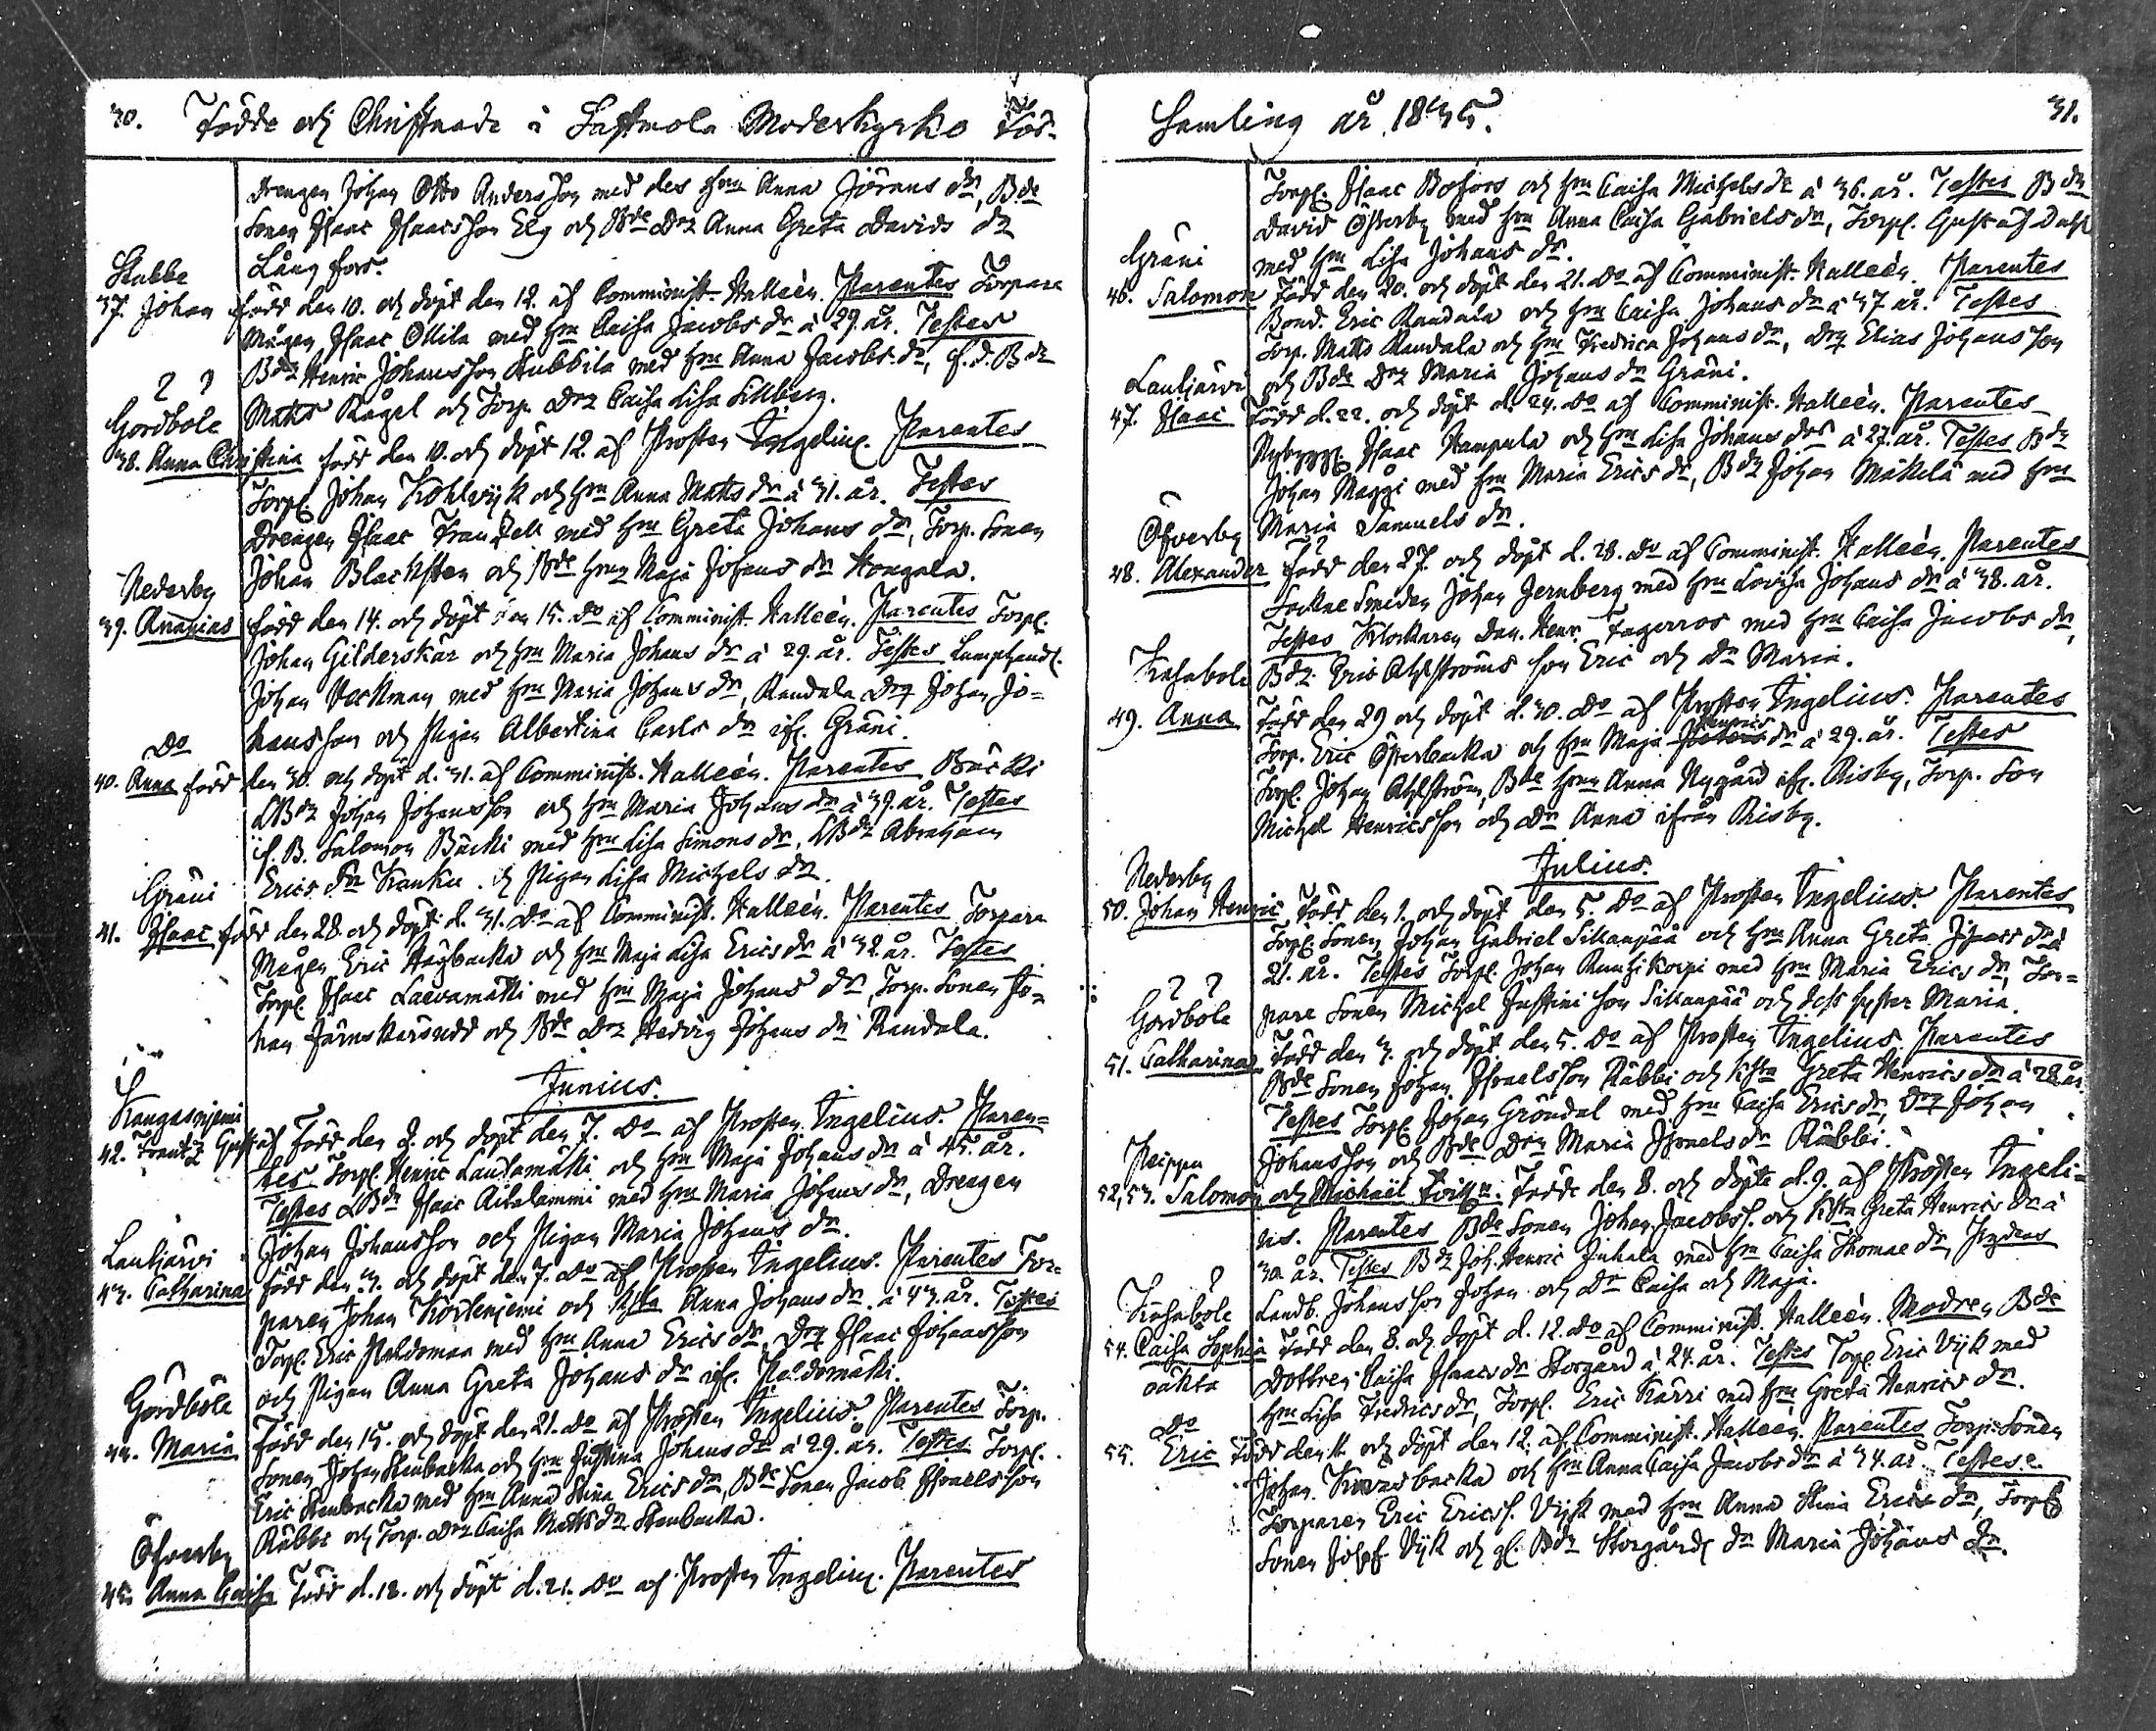 30. Födde och Christnade i Sastmola Moderkyrko För-
Drengen Johan Otto Andersson med des Hru Anna Jörans dr, Bde
Sonen Isaac Isaacsson Elg och Bde Dr Anna Greta Davids dr
Lång fors.
Stubbe
37. Johan född den 10. och döpt den 12. af Comminist. Halleèn. Parentes Torpare
Mågen Isaac Ollila med Hru Caisa Jacobs dr à 29. år. Testes
Bdn Henric Johansson Stubbila med Hru Anna Jacobs dr, f.d. Bdn
Matts Rågel och Torp. Dr Caisa Lisa Sillberg.
Gördböle
38. Anna Christina född den 10. och döpt 12. af Prosten Ingelius. Parentes
Torp. Johan Kohlvijk och Hru Anna Matts dr à 31. år. Testes
Drengen Isaac Frantzell med Hru Greta Johans dr, Torp. Sonen
Johan Blacksten och Bde Hrun Maja Johans dr Kongala.
Nederby
39. Ananias född den 14. och döpt den 15. do af Comminist. Halleèn. Parentes Torp.
Johan Gilderskär och Hru Maria Johans dr à 29. år. Testes Lumphandl.
Johan Veckman med Hru Maria Johans dr, Randala Drg Johan Jo-
hansson och Pigan Albertina Carls dr if. Gräni.
Do
40. Anna född den 30. och döpt d. 31. af Comminist. Halleèn. Parentes Bäcki
LBdn Johan Johansson och Hru Maria Johans dr à 39. år. Testes
if. B. Salomon Bäcki med Hru Lisa Simons dr, LBdn Abraham
Erics son Kanku och Pigan Lisa Michels dr.
Gräni
41. Isaac född den 28. och döpt d. 31. do af Comminist. Halleèn. Parentes Torpare
Mågen Eric Högbacka och Hru Maja Lisa Erics dr à 32. år. Testes
Torp. Isaac Laevamäki med Hru Maja Johans dr, Torp. Sonen Jo-
han Järnskärsudd och Bde Dr Hedvig Johans dr Randala.
Junius.
Kangasnjemi
42. Frantz Gustaf född den 2. och döpt den 7. do af Prosten Ingelius. Paren-
tes Torp. Henric Laudamäki och Hru Maja Johans dr à 45. år.
Testes LBdn Isaac Aitalammi med Hru Maria Johans dr, Drengen
Johan Johansson och Pigan Maria Johans dr.
Lautjärvi
43. Catharina född den 3. och döpt den 7. do af Prosten Ingelius. Parentes Tor-
paren Johan Kortenjemi och H:a Anna Johans dr à 43. år. Testes
Torp. Eric Peldomaa med Hru Anna Erics dr, Drg Isaac Johansson
och Pigan Anna Greta Johans dr if. Peldomäki.
Gördböle
44. Maria född den 15. och döpt den 21. do af Prosten Ingelius. Parentes Torp.
Sonen Johan Stenbacka och Hru Justina Johans dr à 29. år. Testes Torp.
Eric Stenbacka med Hru Anna Stina Erics dr, Bde Sonen Jacob Israelsson
Räbbi och Torp. Dr Caisa Matts dr Stenbacka.
Öfverby
45. Anna Caisa född d. 18. och döpt d. 21. do af Prosten Ingelius. Parentes
Samling år 1835. 31.
Torp. Isaac Bofors och Hru Caisa Michels dr à 36. år. Testes Bdn
David Österby med Hru Anna Caisa Gabriels dr, Torp. Gustaf Dahl
med Hru Lisa Johans dr.
Gräni
46. Salomon född den 20. och döpt den 21. do af Comminist. Halleèn. Parentes
Bond. Eric Randala och Hru Caisa Johans dr à 37 år. Testes
Torp. Matts Randala och Hru Fredrica Johans dr, Drg Elias Johansson
och Bde Dr Maria Johans dr Gräni.
Lautjärvi
47. Isaac född d. 22. och döpt d. 24. do af Comminist. Halleèn. Parentes
Nybygg. Isaac Hampula och Hru Lisa Johans dr à 27. år. Testes Bdn
Johan Måggi med Hru Maria Erics dr, Bdn Johan Mäkelä med Hru
Maria Samuels dr.
Öfverby
48. Alexander född den 27. och döpt d. 28. do af Comminist. Halleèn. Parentes
Sockne Smeden Johan Jernberg med Hru Lovisa Johans dr à 38. år.
Testes Klockaren Dan. Henr. Fagerros med Hru Caisa Jacobs dr,
Bdn Eric Ahlströms son Eric och dr Maria.
Kasaböle
49. Anna född den 29 och döpt d. 30. do af Prosten Ingelius. Parentes
Torp. Eric Österbacka och Hru Maja Henrics dr à 29. år. Testes
Torp. Johan Ahlström, Bde Hrun Anna Nygård if. Risby, Torp. Son
Michel Henricsson och dr Anna ifrån Risby.
Julius.
Nederby
50. Johan Henric född den 1. och döpt den 5. do af Prosten Ingelius. Parentes
Torp. Sonen Johan Gabriel Sillanpää och Hru Anna Greta Isaacs dr à
21. år. Testes Torp. Johan Ruutzikorpi med Hru Maria Erics dr, Tor-
pare Sonen Michel Justini son Sillanpää och dess syster Maria.
Gördböle
51. Catharina född den 3. och döpt den 5. do af Prosten Ingelius. Parentes
Bde Sonen Johan Israelsson Räbbi och H:a Greta Henrics dr à 28 år.
Testes Torp. Johan Gröndal med Hru Caisa Erics dr, Drg Johan
Johansson och Bde Dr Maria Israels dr Räbbi.
Peippu
52, 53. Salomon och Michaël Tvill:r. födde den 8. och döpte d. 9. af Prosten Ingeli-
us. Parentes Bde Sonen Johan Jacobss. och H:a Greta Henrics dr à
30. år. Testes Bdn Joh. Henric Juhala med Hru Caisa Thomae dr,
Landb. Johansson Johan och dr Caisa och Maja.
Kasaböle
54. Caisa Sophia född den 8. och döpt d. 12. do af Comminist. Halleèn. Modren Bde
oäkta Dottren Caisa Isaacs dr Storgård à 24. år. Testes Torp. Eric Vijk med
Hru Lisa Fredrics dr, Torp. Eric Kärri med Hru Greta Henrics dr.
Do
55. Eric född den 11. och döpt den 12. af Comminist. Halleèn. Parentes Torp. Sonen
Johan Kivasbacka och Hru Anna Caisa Jacobs dr à 34. år. Testes
Torparen Eric Erics. Vijk med Hru Anna Stina Erics dr, Torp.
Sonen Josef Vijk och gl. Bdn Storgårds dr Maria Johans dr.